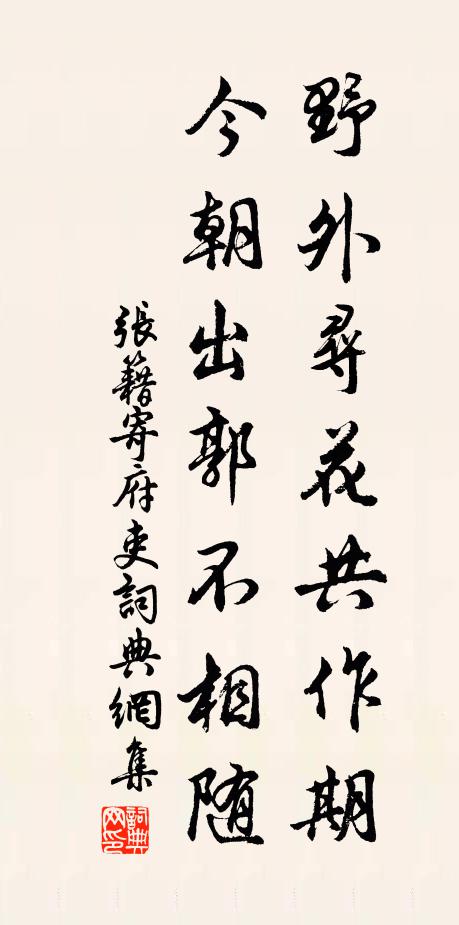 野外尋花共作期
今朝出郭不相随
張籍寄府吏詞典網集
詞典网印